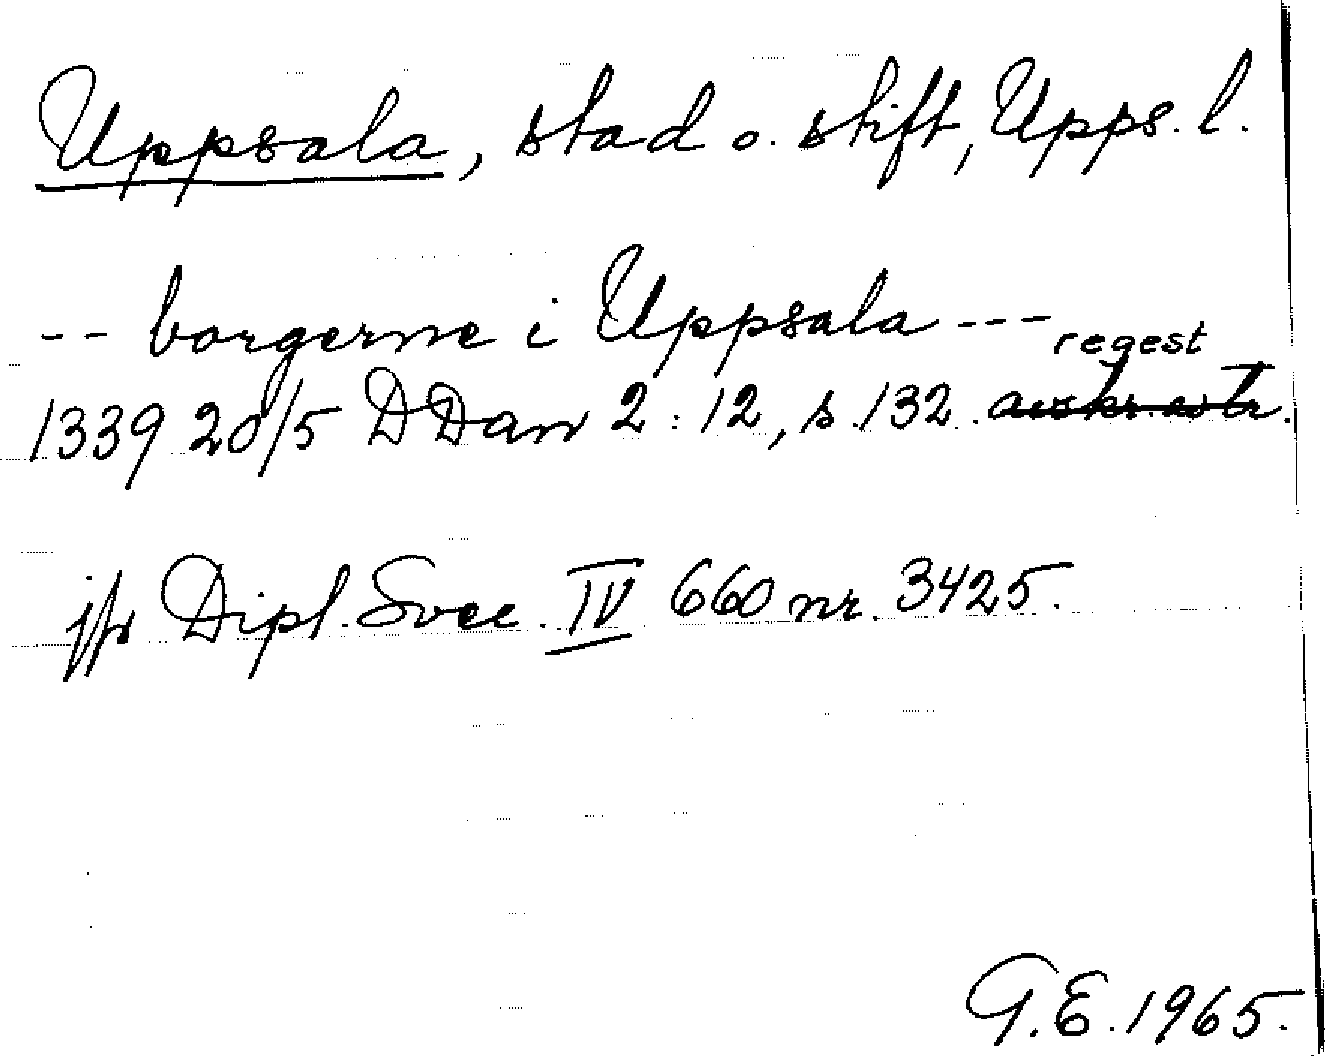 Uppsala, stad o. stift, Upps. l.
-- borgerne i Uppsala ---
regest
1339 20/5 DDan 2:12, s. 132.
jfr Dipl. Svec. IV 660 nr. 3425.
G.E. 1965.